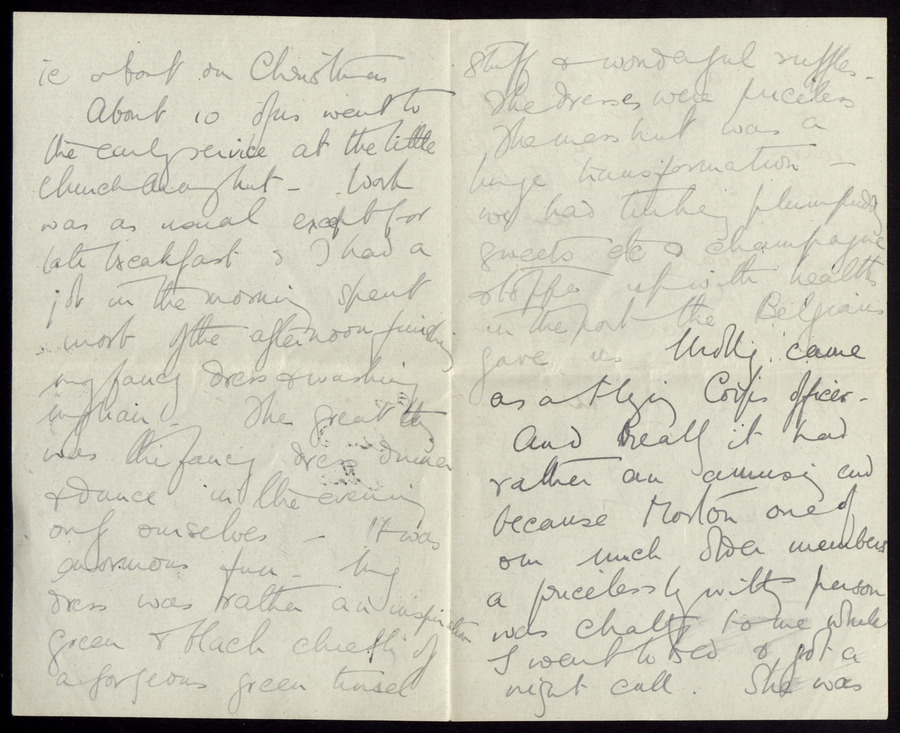 ie about on Christmas
About 10 of us went to
the early service at the little
church Army hut - Work
was as usual except for
late breakfast & I had a
job in the morning spent
most of the afternoon finding
my fancy dress & washing
my hair. The great thing
was the fancy dress dinner
& dance in the evening
only ourselves - It was
enormous fun - My
dress was rather an inspiration
green & black chiefly of
a gorgeous green tinsel
stuff & wonderful ruffles.
The dresses were priceless
The mess hut was a
huge transformation -
we had turkey plumpudding
sweets etc & champagne
& topped up with healths
in the port the Belgians
gave us Molly came
as a Flying Corps officer -
And really it had
rather an amusing end
because Morton one of
our much older members
a pricelessly witty person
was chatty to me while
I went to bed & got a
night call. She was